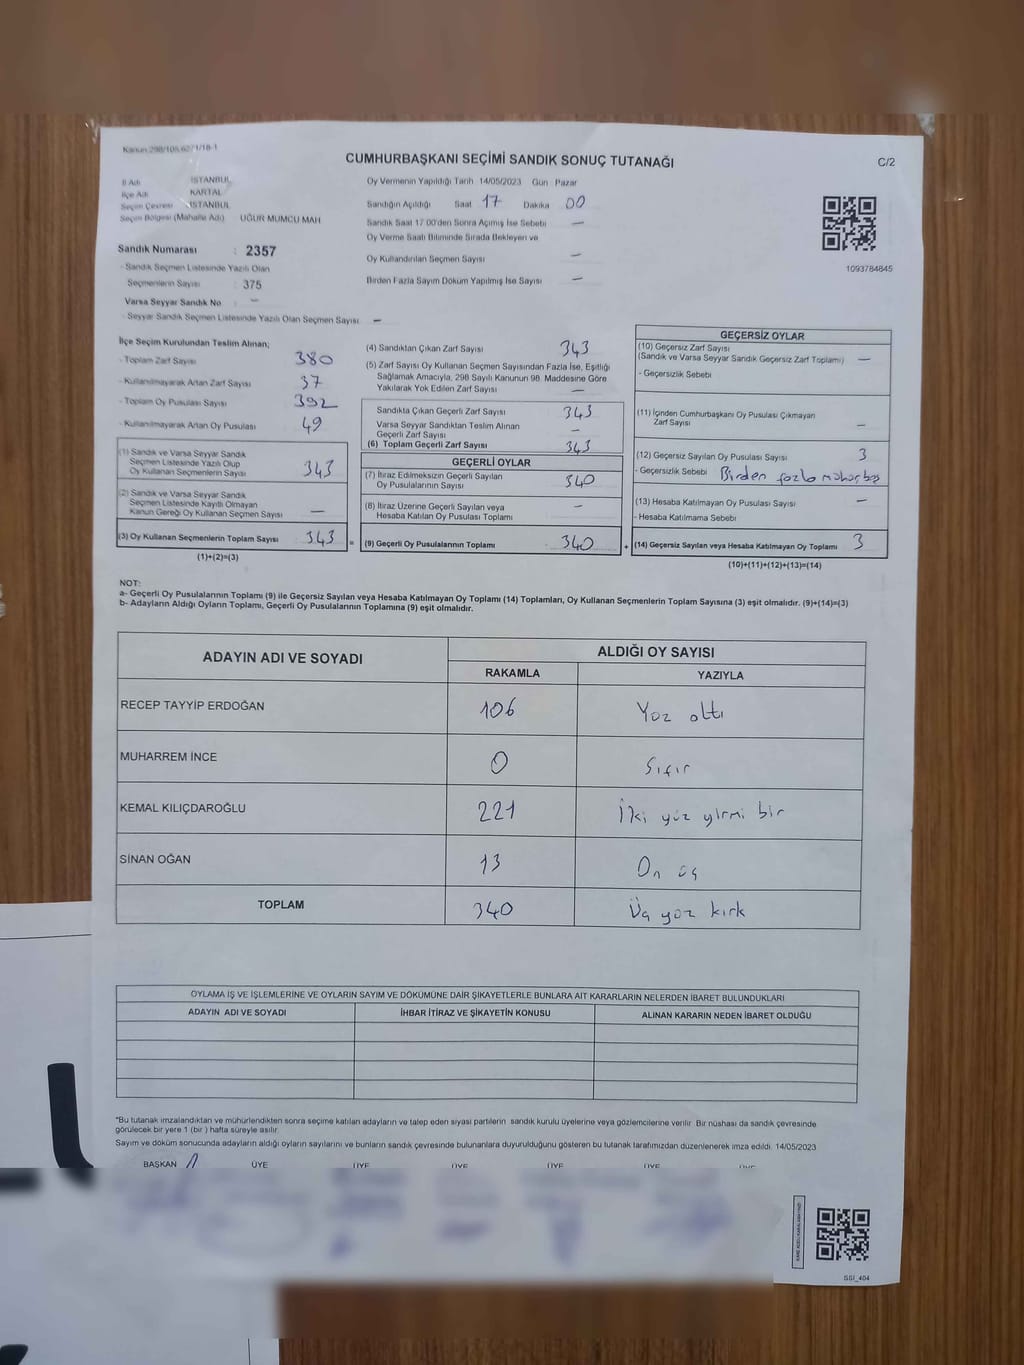 Kanun:298/105,6271/18-1
CUMHURBAŞKANI SEÇİMİ SANDIK SONUÇ TUTANAĞI
C/2
İl Adı : İSTANBUL
İlçe Adı : KARTAL
Seçim Çevresi : İSTANBUL
Seçim Bölgesi (Mahalle Adı) : UĞUR MUMCU MAH
Sandık Numarası : 2357
- Sandık Seçmen Listesinde Yazılı Olan
Seçmenlerin Sayısı : 375
Varsa Seyyar Sandık No : —
- Seyyar Sandık Seçmen Listesinde Yazılı Olan Seçmen Sayısı : —
Oy Vermenin Yapıldığı Tarih 14/05/2023 Gün Pazar
Sandığın Açıldığı Saat 17 Dakika 00
Sandık Saat 17:00'den Sonra Açılmış İse Sebebi —
Oy Verme Saati Bitiminde Sırada Bekleyen ve
Oy Kullandırılan Seçmen Sayısı —
Birden Fazla Sayım Döküm Yapılmış İse Sayısı —
1093784845
İlçe Seçim Kurulundan Teslim Alınan;
- Toplam Zarf Sayısı : 380
- Kullanılmayarak Artan Zarf Sayısı : 37
- Toplam Oy Pusulası Sayısı : 392
- Kullanılmayarak Artan Oy Pusulası : 49
(1) Sandık ve Varsa Seyyar Sandık
Seçmen Listesinde Yazılı Olup
Oy Kullanan Seçmenlerin Sayısı : 343
(2) Sandık ve Varsa Seyyar Sandık
Seçmen Listesinde Kayıtlı Olmayan
Kanun Gereği Oy Kullanan Seçmen Sayısı : —
(3) Oy Kullanan Seçmenlerin Toplam Sayısı : 343 =
(1)+(2)=(3)
(4) Sandıktan Çıkan Zarf Sayısı : 343
(5) Zarf Sayısı Oy Kullanan Seçmen Sayısından Fazla İse, Eşitliği
Sağlamak Amacıyla, 298 Sayılı Kanunun 98. Maddesine Göre
Yakılarak Yok Edilen Zarf Sayısı : —
Sandıkta Çıkan Geçerli Zarf Sayısı : 343
Varsa Seyyar Sandıktan Teslim Alınan
Geçerli Zarf Sayısı : —
(6) Toplam Geçerli Zarf Sayısı : 343
GEÇERLİ OYLAR
(7) İtiraz Edilmeksizin Geçerli Sayılan
Oy Pusulalarının Sayısı : 340
(8) İtiraz Üzerine Geçerli Sayılan veya
Hesaba Katılan Oy Pusulası Toplamı : —
(9) Geçerli Oy Pusulalarının Toplamı : 340 +
GEÇERSİZ OYLAR
(10) Geçersiz Zarf Sayısı
(Sandık ve Varsa Seyyar Sandık Geçersiz Zarf Toplamı) : —
- Geçersizlik Sebebi
(11) İçinden Cumhurbaşkanı Oy Pusulası Çıkmayan
Zarf Sayısı : —
(12) Geçersiz Sayılan Oy Pusulası Sayısı : 3
- Geçersizlik Sebebi Birden fazla
(13) Hesaba Katılmayan Oy Pusulası Sayısı : —
- Hesaba Katılmama Sebebi
(14) Geçersiz Sayılan veya Hesaba Katılmayan Oy Toplamı : 3
(10)+(11)+(12)+(13)=(14)
NOT:
a- Geçerli Oy Pusulalarının Toplamı (9) ile Geçersiz Sayılan veya Hesaba Katılmayan Oy Toplamı (14) Toplamları, Oy Kullanan Seçmenlerin Toplam Sayısına (3) eşit olmalıdır. (9)+(14)=(3)
b- Adayların Aldığı Oyların Toplamı, Geçerli Oy Pusulalarının Toplamına (9) eşit olmalıdır.
ADAYIN ADI VE SOYADI
ALDIĞI OY SAYISI
RAKAMLA YAZIYLA
RECEP TAYYİP ERDOĞAN 106 Yüz altı
MUHARREM İNCE 0 Sıfır
KEMAL KILIÇDAROĞLU 221 İki yüz yirmi bir
SİNAN OĞAN 13 On üç
TOPLAM 340 Üç yüz kırk
OYLAMA İŞ VE İŞLEMLERİNE VE OYLARIN SAYIM VE DÖKÜMÜNE DAİR ŞİKAYETLERLE BUNLARA AİT KARARLARIN NELERDEN İBARET BULUNDUKLARI
ADAYIN ADI VE SOYADI İHBAR İTİRAZ VE ŞİKAYETİN KONUSU ALINAN KARARIN NEDEN İBARET OLDUĞU
*Bu tutanak imzalandıktan ve mühürlendikten sonra seçime katılan adayların ve talep eden siyasi partilerin sandık kurulu üyelerine veya gözlemcilerine verilir. Bir nüshası da sandık çevresinde
görülecek bir yere 1 (bir ) hafta süreyle asılır.
Sayım ve döküm sonucunda adayların aldığı oyların sayılarını ve bunların sandık çevresinde bulunanlara duyurulduğunu gösteren bu tutanak tarafımızdan düzenlenerek imza edildi. 14/05/2023
BAŞKAN ÜYE ÜYE ÜYE ÜYE ÜYE ÜYE
SSI_404